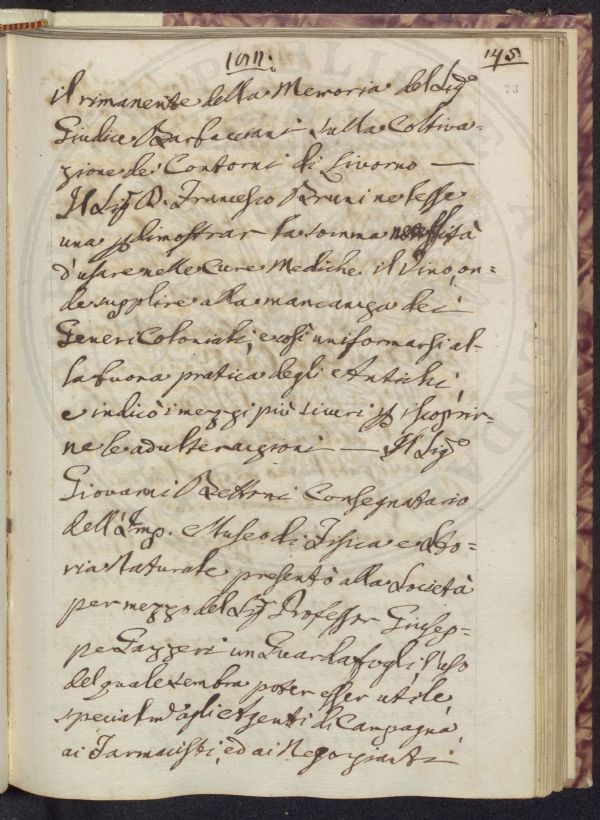 1811.
145.
73
il rimanente della Memoria del Sig.
Giudice Barbacciani sulla Coltiva=
zione de' Contorni di Livorno —
Il Sig. D. Francesco Bruni ne lesse
una p dimostrar la somma necessità
d'usare nelle Cure Mediche il Vino, on=
de supplire alla mancanza dei
Generi Coloniali, e così uniformarsi al-
la buona pratica degli Antichi,
e indicò i mezzi più sicuri p iscoprir-
ne le adulterazioni — Il Sig.
Giovanni Bettoni Consegnatario
dell'Imp. Museo di Fisica e Sto=
ria Naturale presentò alla Società
per mezzo del Sig. Professor Giusep=
pe Gazzeri un Guardafogli, l'uso
del quale sembra poter esser utile
specialm. agli Agenti di Campagna,
ai Farmacisti, ed ai Negozianti